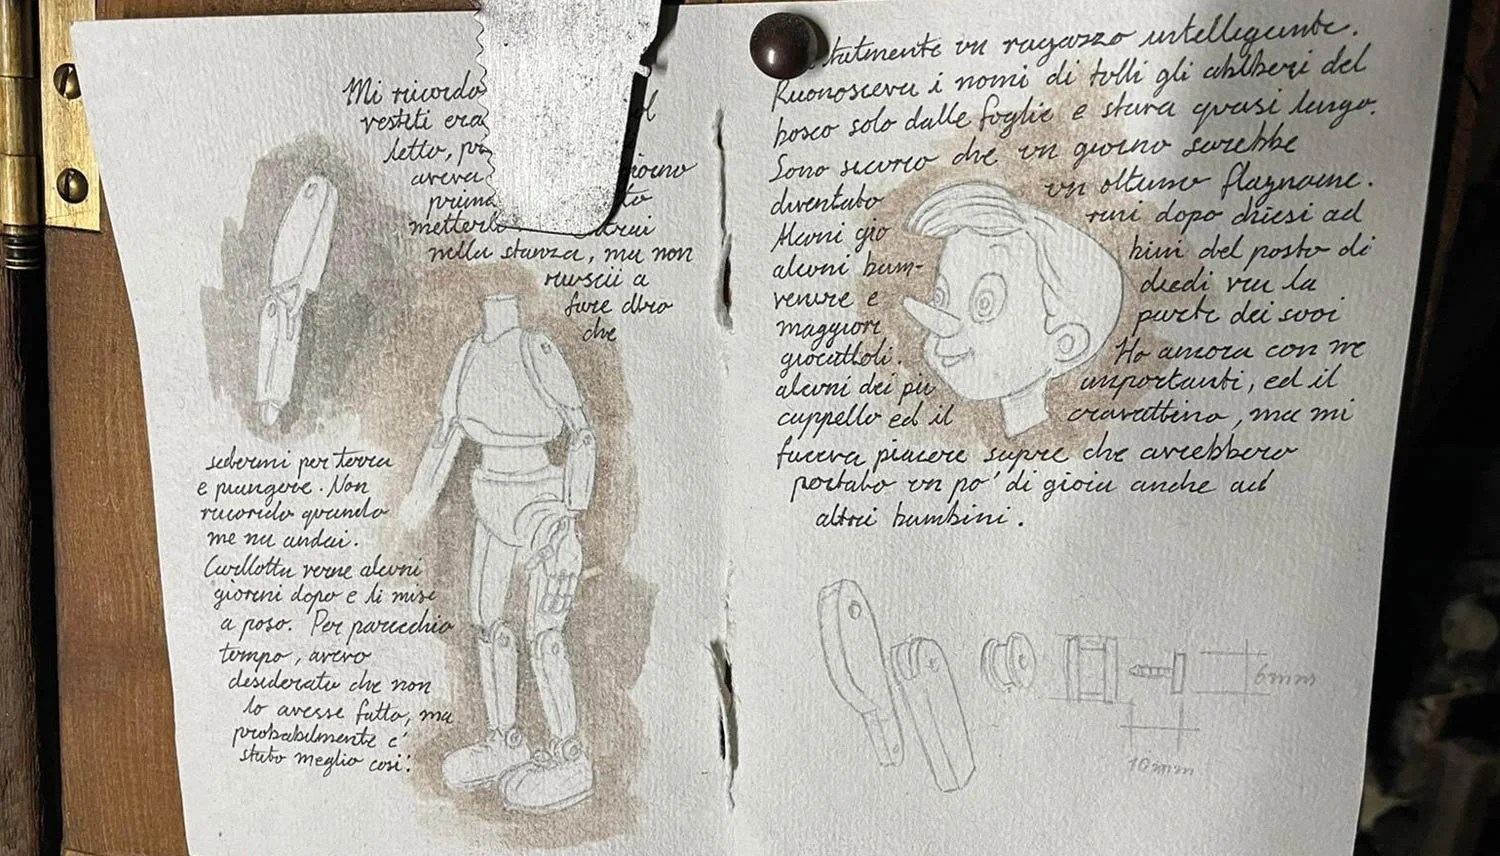 Mi ricordo
vestiti era
letto,
aveva
giorno
metterli
nella stanza, ma non
riuscii a
fare altro
che
sedermi per terra
e piangere. Non
ricordo quando
me ne andai.
Carlotta venne alcuni
giorni dopo e li mise
a poso. Per parecchio
tempo, avevo
desiderato che non
lo avesse fatto, ma
probabilmente é
stato meglio così.
un ragazzo intelligente.
Riconosceva i nomi di tutti gli alberi del
bosco solo dalle foglie e stava quasi lungo.
Sono sicuro che un giorno sarebbe
diventato un ottimo
Alcuni gio rni dopo chiesi ad
alcuni bam- bini del posto di
venire e diedi via la
maggior parte dei suoi
giocattoli. Ho ancora con me
alcuni dei più importanti, ed il
cappello ed il cravattino, ma mi
faceva piacere sapre che avrebbero
portato un po' di gioia anche ad
altri bambini.
6mm
10mm